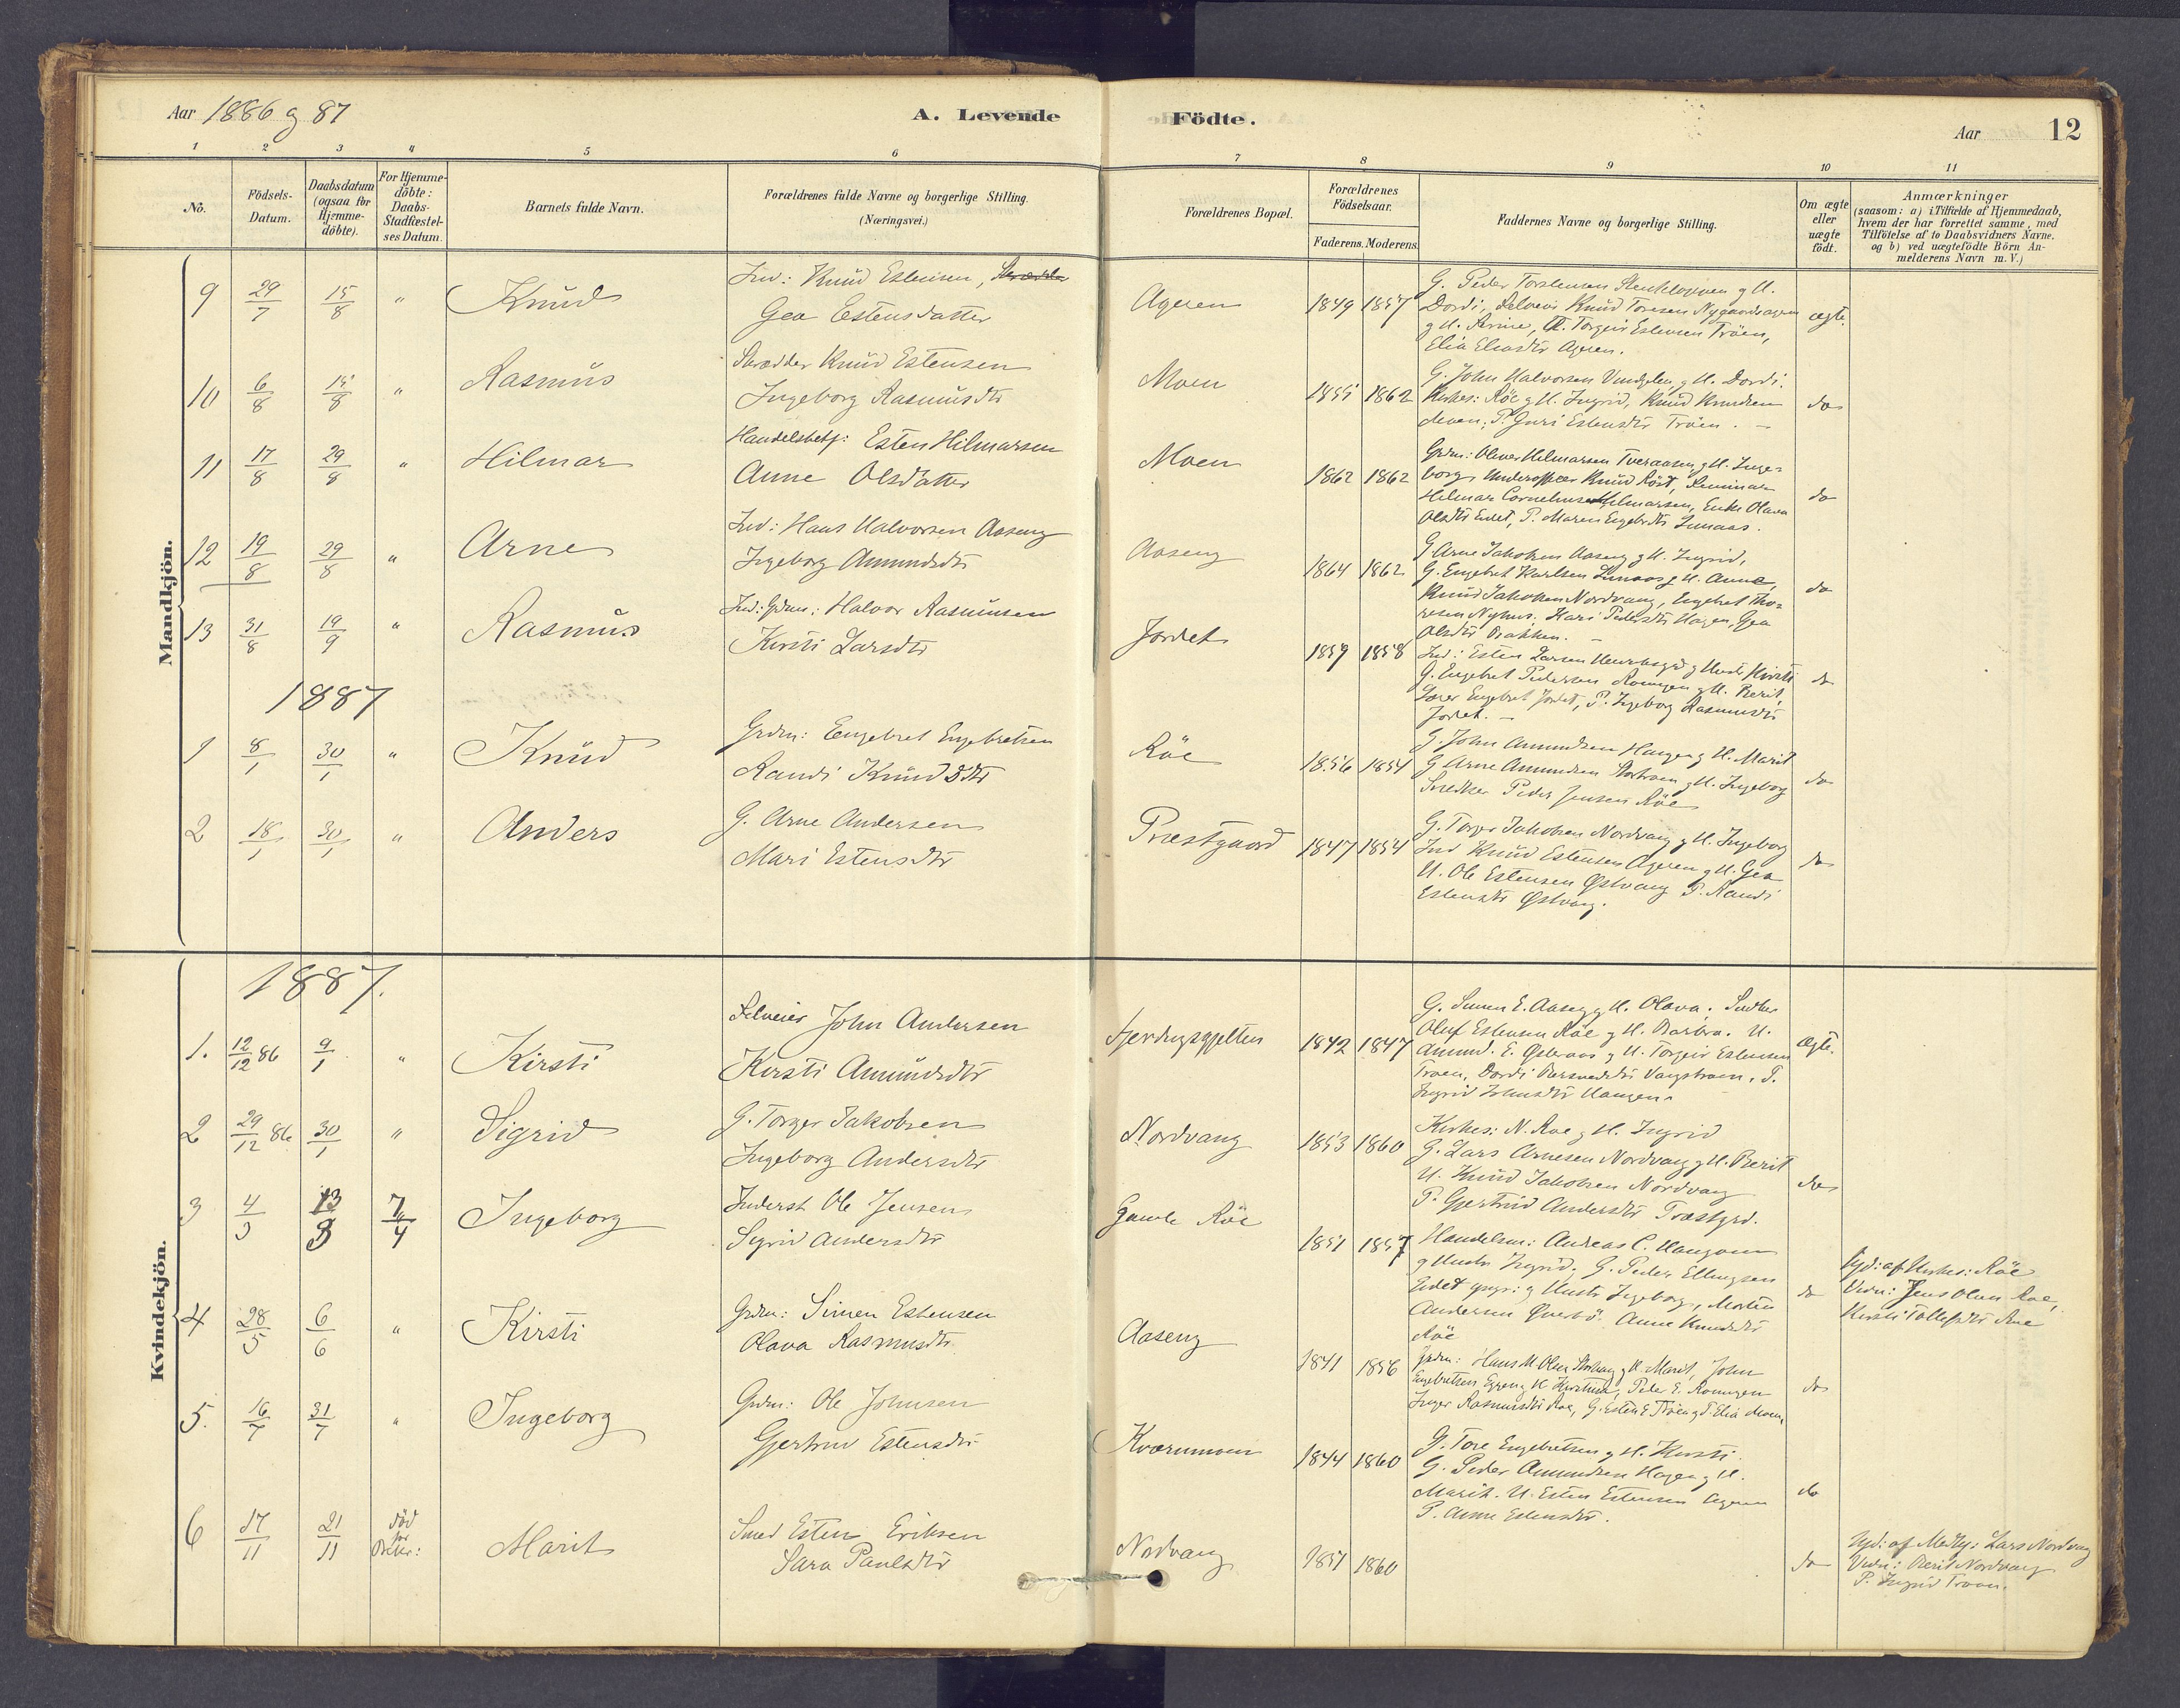 Aar 1886 og 87
A. Levende
Födte.
Aar
12
1 2 3 4 5 6 7 8 9 10 11
No.
Födsels-
Datum.
Daabsdatum
(ogsaa for
Hjemme-
döbte).
For Hjemme-
döbte:
Daabs-
Stadfæstel-
ses Datum.
Barnets fulde Navn.
Forældrenes fulde Navne og borgerlige Stilling.
(Næringsvei.)
Forældrenes Bopæl.
Forældrenes
Födselsaar.
Faderens. Moderens.
Faddernes Navne og borgerlige Stilling.
Om ægte
eller
uægte
födt.
Anmærkninger
(saasom: a) i Tilfælde af Hjemmedaab,
hvem der har forrettet samme, med
Tilföielse af to Daabsvidners Navne,
og b) ved uægtefödte Börn An-
melderens Navn m. V.)
Mandkjön.
9 29/7 15/8 " Knud
Ind: Knud Estensen,
Gea Estensdatter
Ageren 1849 1857
G. Peder Torstensen g H.
Dordi, Selveier Knud Toresen
g H. Torgeir Estensen Tröen,
Elia Ageren.
ægte.
10 6/8 15/8 " Rasmus
Skrædder Knud Estensen
Ingeborg Rasmusdtr
Moen 1855 1862
G. John Halvorsen Vingelen, g H. Dordi.
Kirkes: Röe g H. Ingrid, Knud Knudsen
Moen, P. Guri Estensdtr Tröen. —
do
11 17/8 29/8 " Hilmar
Handelsbetj: Esten Hilmarsen
Anne Olsdatter
Moen 1862 1862
Grdm: Oliver Hilmarsen Tveraasen, g H. Inge-
borg, Underofficer Knud Röst,
Hilmar Cornelius Hilmarsen, Enke Olava
Olsdtr P. Maren Engebrdtr
do
12 19/8 29/8 " Arne
Ind: Hans Halvorsen Aaseng
Ingeborg Amundsdtr
Aaseng 1864 1862
G Arne Jakobsen Aaseng g H. Ingrid,
G. Engebret Karlsen g H. Anne,
Knud Jakobsen Nordvang, Engebret Tho-
resen Nyhus. Kari Pedersdtr Hagen, Gea
Olsdtr Bakken. —
do
13 31/8 19/9 " Rasmus
Ind: Grdm: Halvor Rasmussen
Kirsti Larsdtr
Jordet 1859 1858
Ind: Esten Larsen g Hustr Kirsti
G. Engebret Pedersen g H. Berit,
Lærer Engebret Jordet, P. Ingeborg Rasmusdtr
Jordet. —
do
1887
1 8/1 30/1 " Knud
Grdm: Engebret Engebretsen
Randi Knudsdtr
Röe 1856 1854
G. John Amundsen Haugen g H. Marit
G Arne Amundsen g H. Ingeborg
Snedker Peder Jensen Röe
do
2 18/1 30/1 " Anders
G. Arne Andersen
Mari Estensdtr
Præstgaard 1847 1854
G. Torger Jakobsen Nordvang g H. Ingeborg
Ind Knud Estensen Ageren g H. Gea
U. Ole Estensen Østvang P. Randi
Estensdtr Østvang.
do
Kvindekjön.
1887.
1. 12/12 86 9/1 " Kirsti
Selveier John Andersen
Kirsti Amundsdtr
1842 1847
G. Simen E. Aaseng g H. Olava,
Oluf Estensen Röe g H. Barbra. U.
Amund. E. g H. Torgeir Estensen
Troen, Dordi P.
Ingrid Johnsdtr Haugen.
Ægte.
2 29/12 86 30/1 " Sigrid
G. Torger Jakobsen
Ingeborg Andersdtr
Nordvang 1853 1860
Kirkes: N. Röe g H. Ingrid
G. Lars Arnesen Nordvang g H. Berit
U. Knud Jakobsen Nordvang
P. Gjertrud Andersdtr Præstgrd.
do
3 4/3 13/3 7/4 Ingeborg
Inderst Ole Jensen
Sigrid Andersdtr
Gamle Röe 1851 1857
Handelsm: Andreas C. Haugom
g Hustr Ingrid. G. Peder Ellingsen
Eidet g Hustr Ingeborg, Morten
Andersen Anne Knudsdtr
Röe
do
af Kirkes: Röe
Vidn: Jens Olsen Röe,
Kirsti Tollefsdtr Röe
4 28/5 6/6 " Kirsti
Grdm: Simen Estensen
Olava Rasmusdtr
Aaseng 1841 1856
Grdm: Hans M. Olsen g H. Marit, John
Engebretsen Eggen g H Peder E.
Inger Rasmusdtr Röe, G. Esten E Tröen g P. Elia Moen,
do
5. 16/7 31/7 " Ingeborg
Grdm: Ole Johnsen
Gjertrud Estensdtr
Kværnmoen 1844 1860
G. Tore Engebretsen g H. Kirsti.
G. Peder Amundsen Hagen g H.
Marit. U. Esten Estensen Ageren
P. Anne Estensdtr.
do
6 17/11 21/11 död før Marit
Smed Esten Eriksen
Sara Paulsdtr
Nordvang 1851 1860
do
af Medhj: Lars Nordvang
Vidn: Berit Nordvang
P. Ingrid Troen.